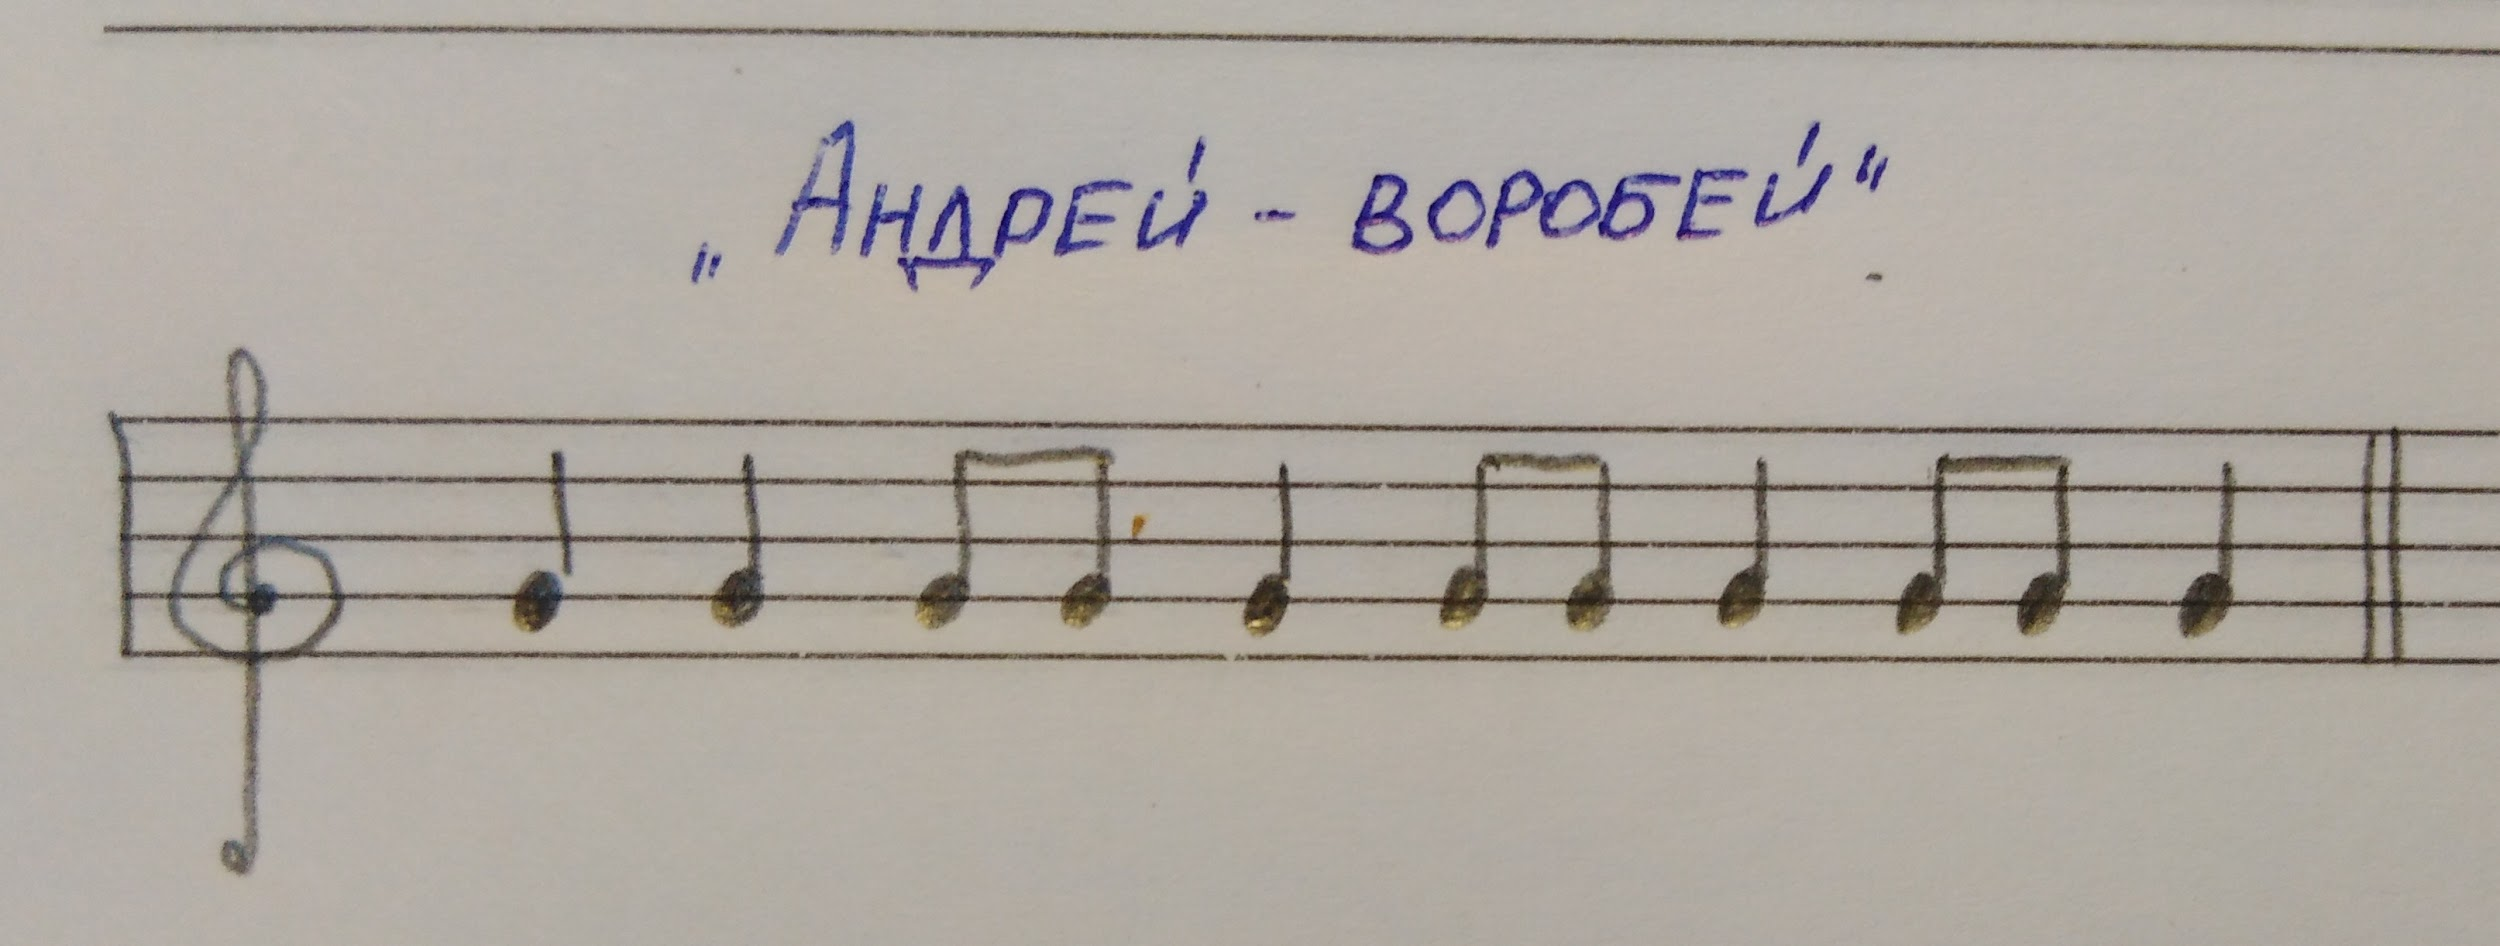 „Андрей - воробей“